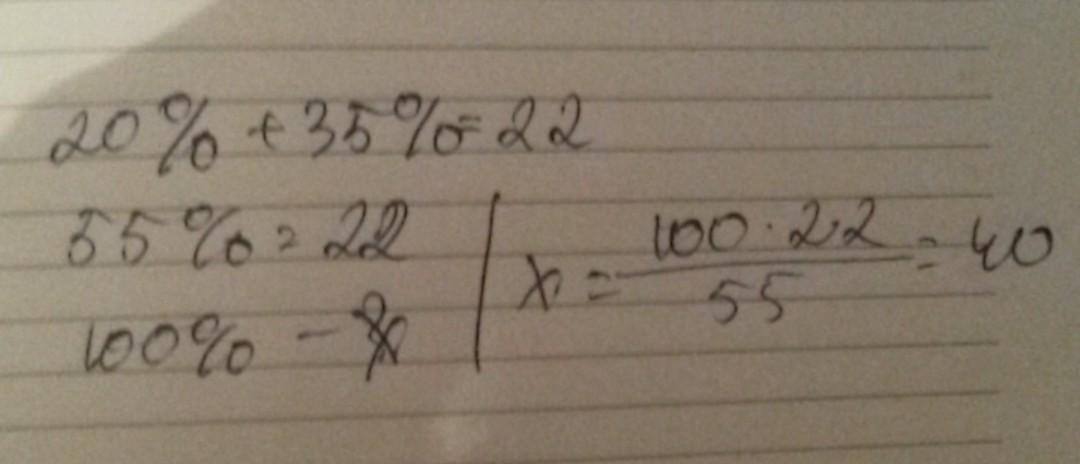 20% + 35% = 22
55% = 22
100% - x
x = 100 · 22 / 55 = 40